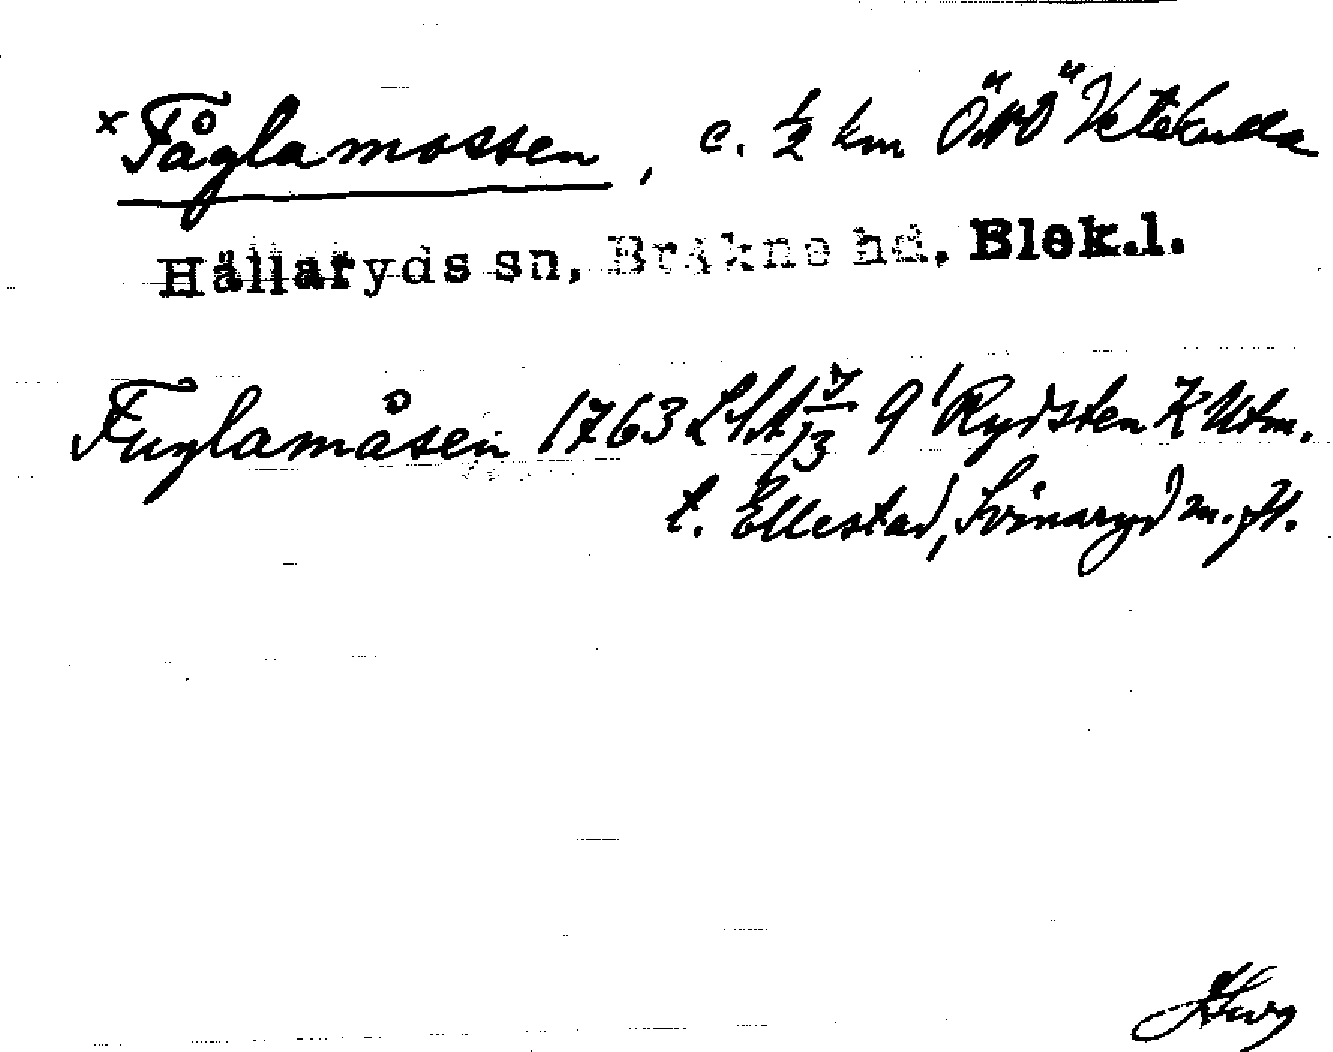 x Fåglamossen, c. ½ km ÖNÖ Vetekulla
Hällaryds sn, Bräkne hd, Blek.l.
Fuglamåsen 1763 7/13 9 Rydsten K Utm.
t. Ellestad, Svinaryd m. fl.